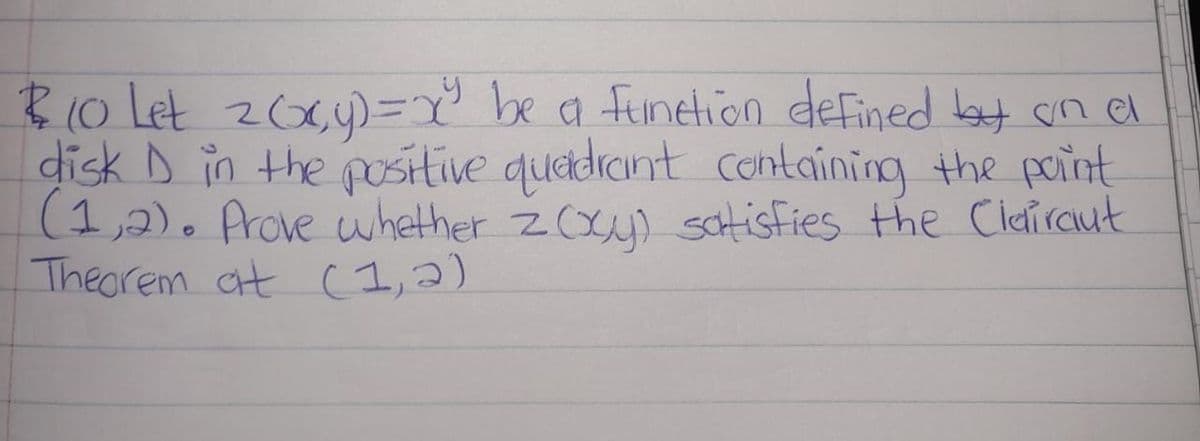 10 Let z(x,y)=x^y be a function defined on a
disk D in the positive quadrant containing the point
(1,2). Prove whether z(x,y) satisfies the Clairaut
Theorem at (1,2)